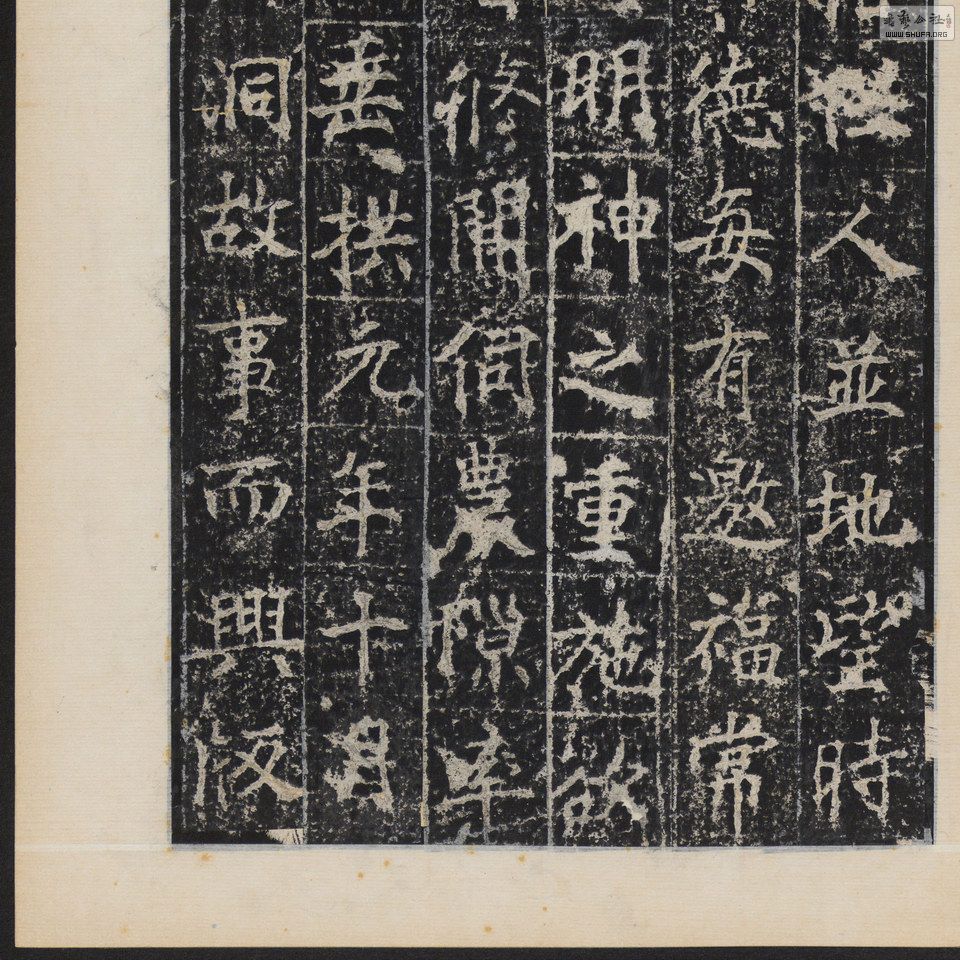 人並地望時
德每有邀福常
明神之重施欲
修閒伺農隙率
垂拱元年十月
洞故事而興版
WWW.SHUFA.ORG